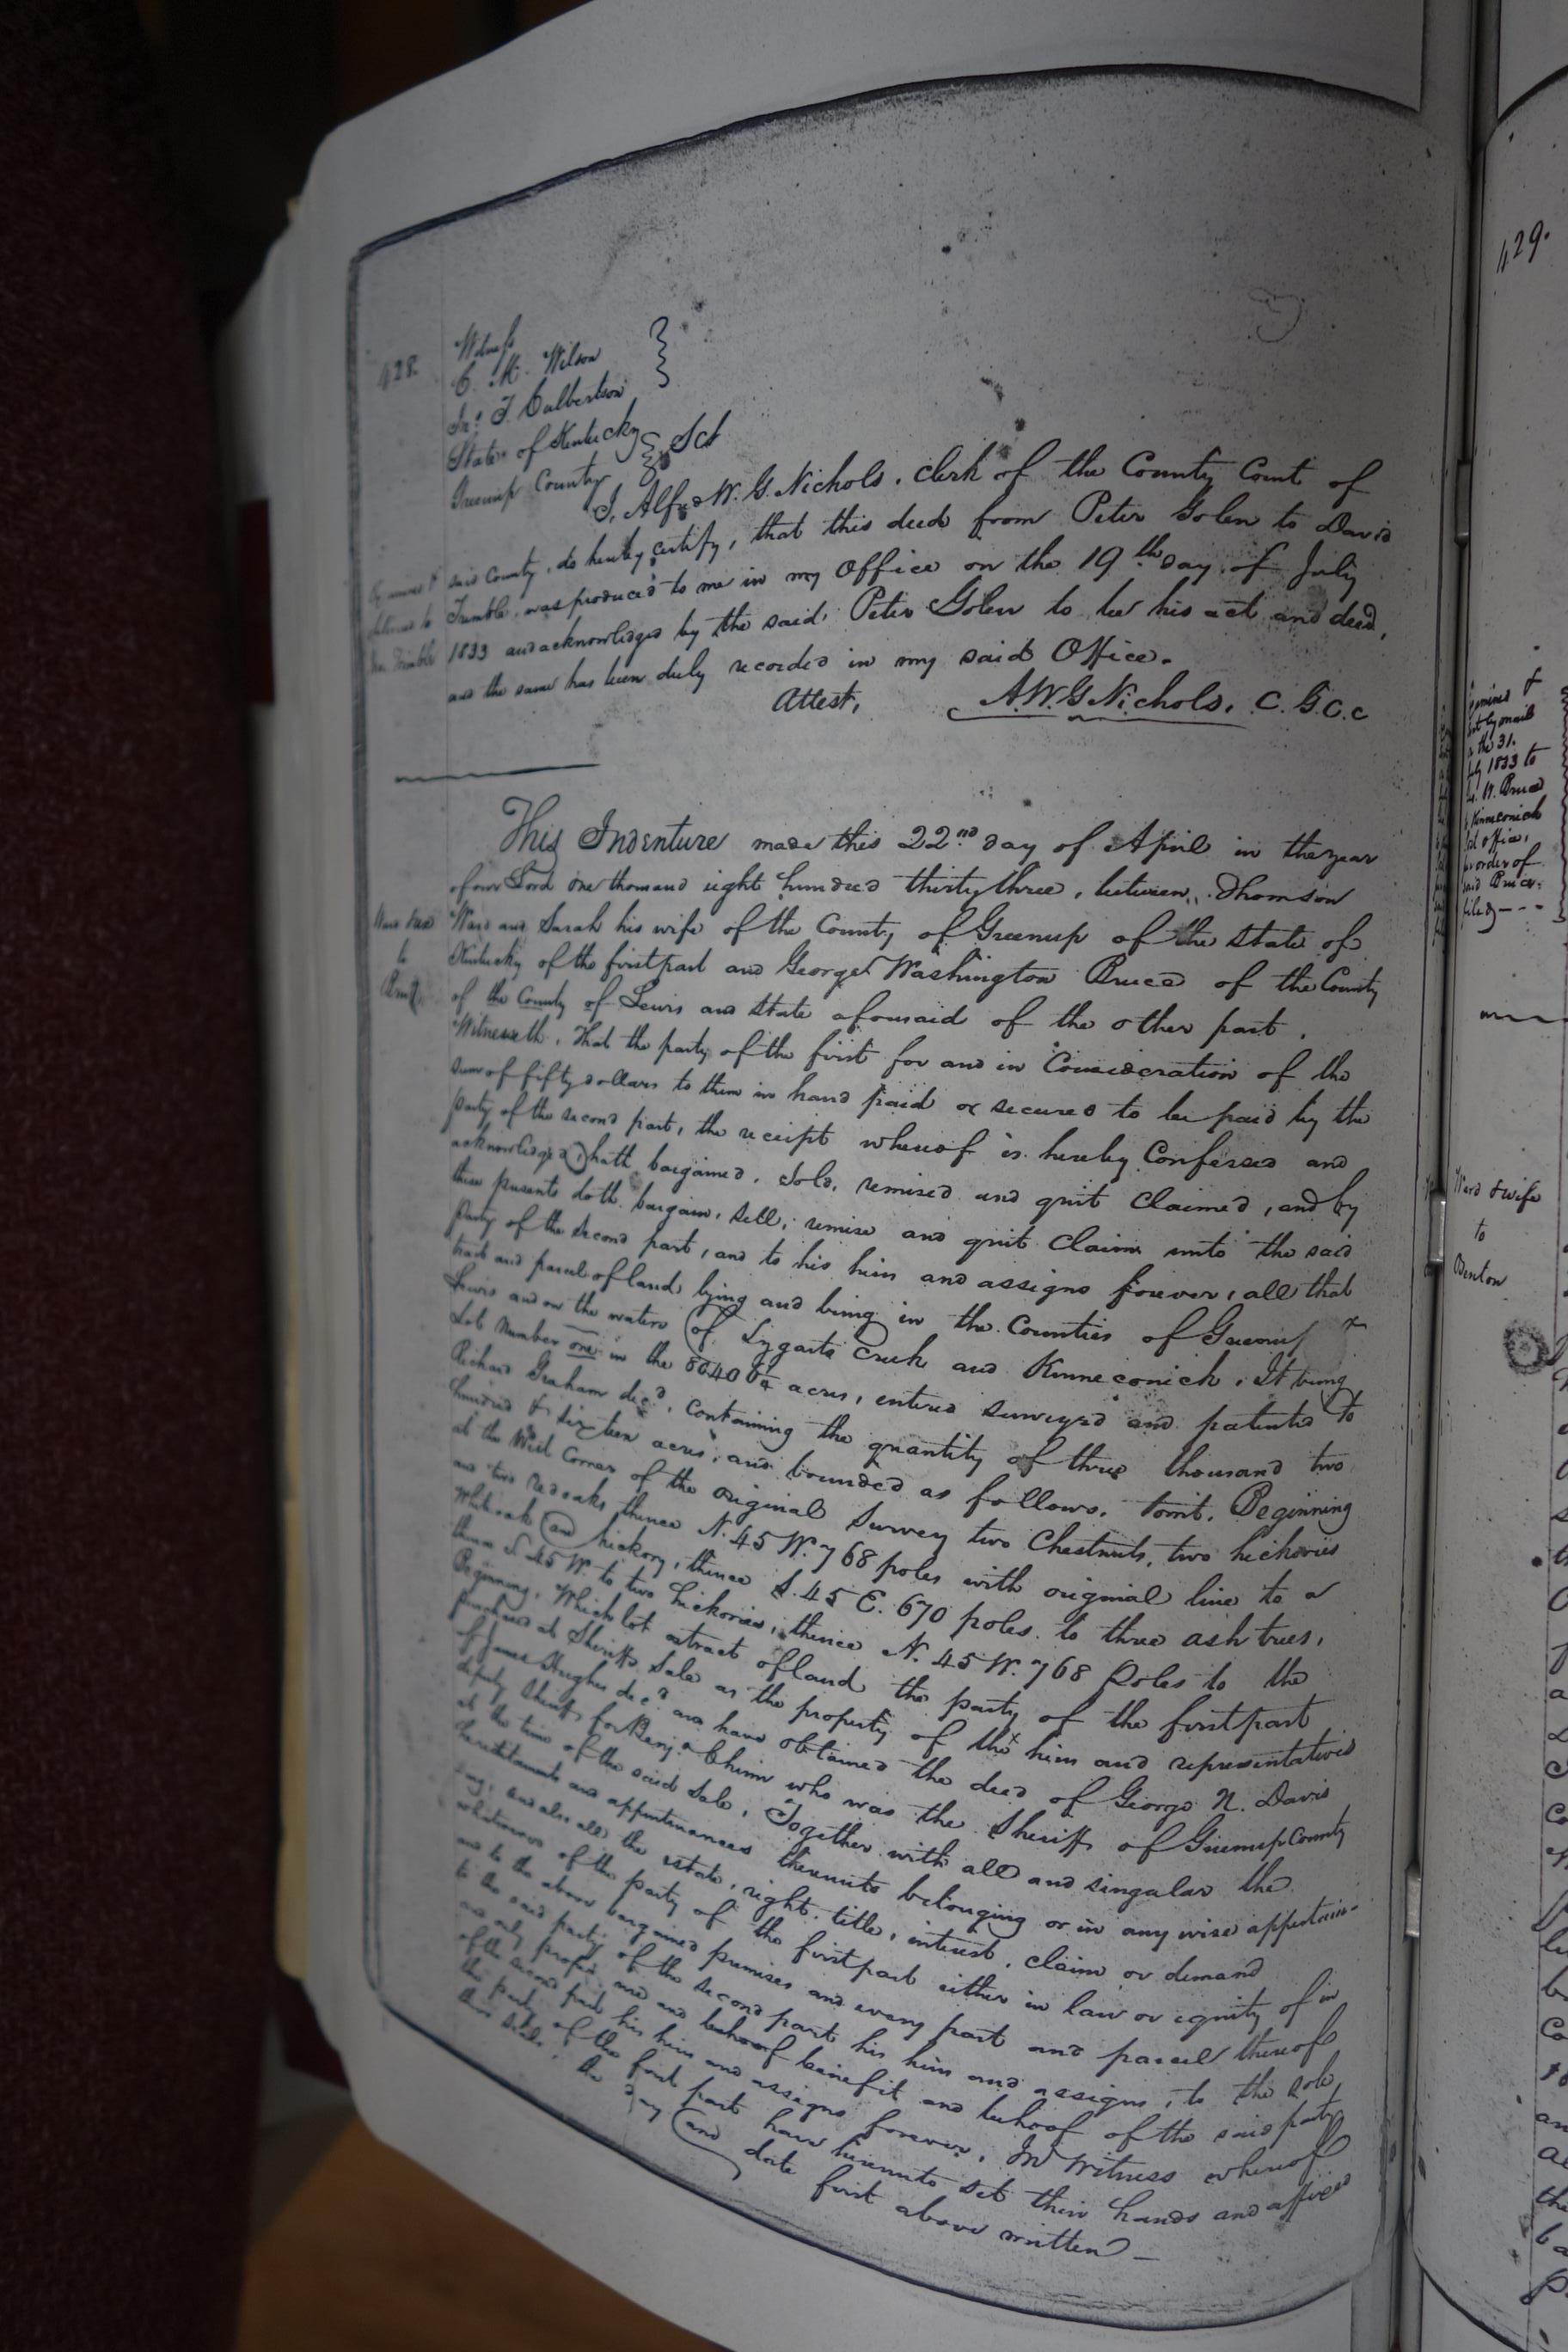 428.
Witness
C. M. Wilson
Jno. T. Culbertson
State of Kentucky
Greenup County Sct
I, Alfred W. G. Nichols, clerk of the County Court of
said County, do hereby certify, that this deed from Peter Golen to David
Trimble, was produced to me in my Office on the 19th day of July
1833 and acknowledged by the said, Peter Golen to be his act and deed,
and the same has been duly recorded in my said Office.
Attest, A. W. G Nichols, C. G. C. C
This Indenture made this 22nd day of April in the year
of our Lord one thousand eight hundred thirty three, between Thomson
Ward and Sarah his wife of the County of Greenup of the State of
Kentucky of the first part and George Washington Bruce of the County
of the County of Lewis and State aforesaid of the other part,
Witnesseth, That the party of the first for and in Consideration of the
sum of fifty dollars to them in hand paid or secured to be paid by the
party of the second part, the receipt whereof is hereby Confessed and
acknowledged, hath bargained, sold, remised and quit claimed, and by
these presents doth bargain, sell, remise and quit claim unto the said
party of the second part, and to his heirs and assigns forever, all that
tract and parcel of land lying and being in the Counties of Greenup &
Lewis and on the waters of Tygarts Creek and Kinneconick, It being
Lot Number one in the acres, entered surveyed and patented to
Richard Graham decd, Containing the quantity of three thousand two
hundred & sixteen acres, and bounded as follows, towit, Beginning
at the West Corner of the original Survey two Chestnuts, two hickories
and two red oaks thence N. 45 W. 768 poles with original line to a
White oak and hickory, thence S. 45 E. 670 poles to three ash trees,
thence S. 45 W. to two hickories, thence N. 45 W. 768 Poles to the
Beginning, Which lot or tract of land the party of the first part
purchased at Sheriffs Sale as the property of the heirs and representatives
of James Hughes decd and have obtained the deed of George N. Davis
deputy Sheriff for Benj. who was the Sheriff of Greenup County
at the time of the said Sale, Together with all and singular the
hereditaments and appurtenances thereunto belonging or in any wise appertain-
ing, and also all the estate, right, title, interest, claim or demand
whatsoever of the party of the first part either in law or equity of in
and to the above bargained premises and every part and parcel thereof
to the said party of the second part his heirs and assigns, to the sole
and only proper use and behoof benefit and behoof of the said party
of the second part his heirs and assigns forever, In Witness whereof
the party of the first part have hereunto set their hands and affixed
their seals, the day and date first above written—
429.
Examined &
sent by mail
on the 31.
July 1833 to
W. Bruce
Kinneconick
post office,
per order of
said Bruce
filed
Ward & wife
to
Benton